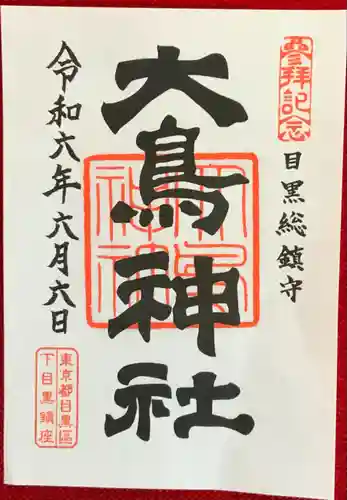 參拝記念
目黒総鎮守
大鳥神社
令和六年六月六日
東京都目黒區
下目黒鎮座